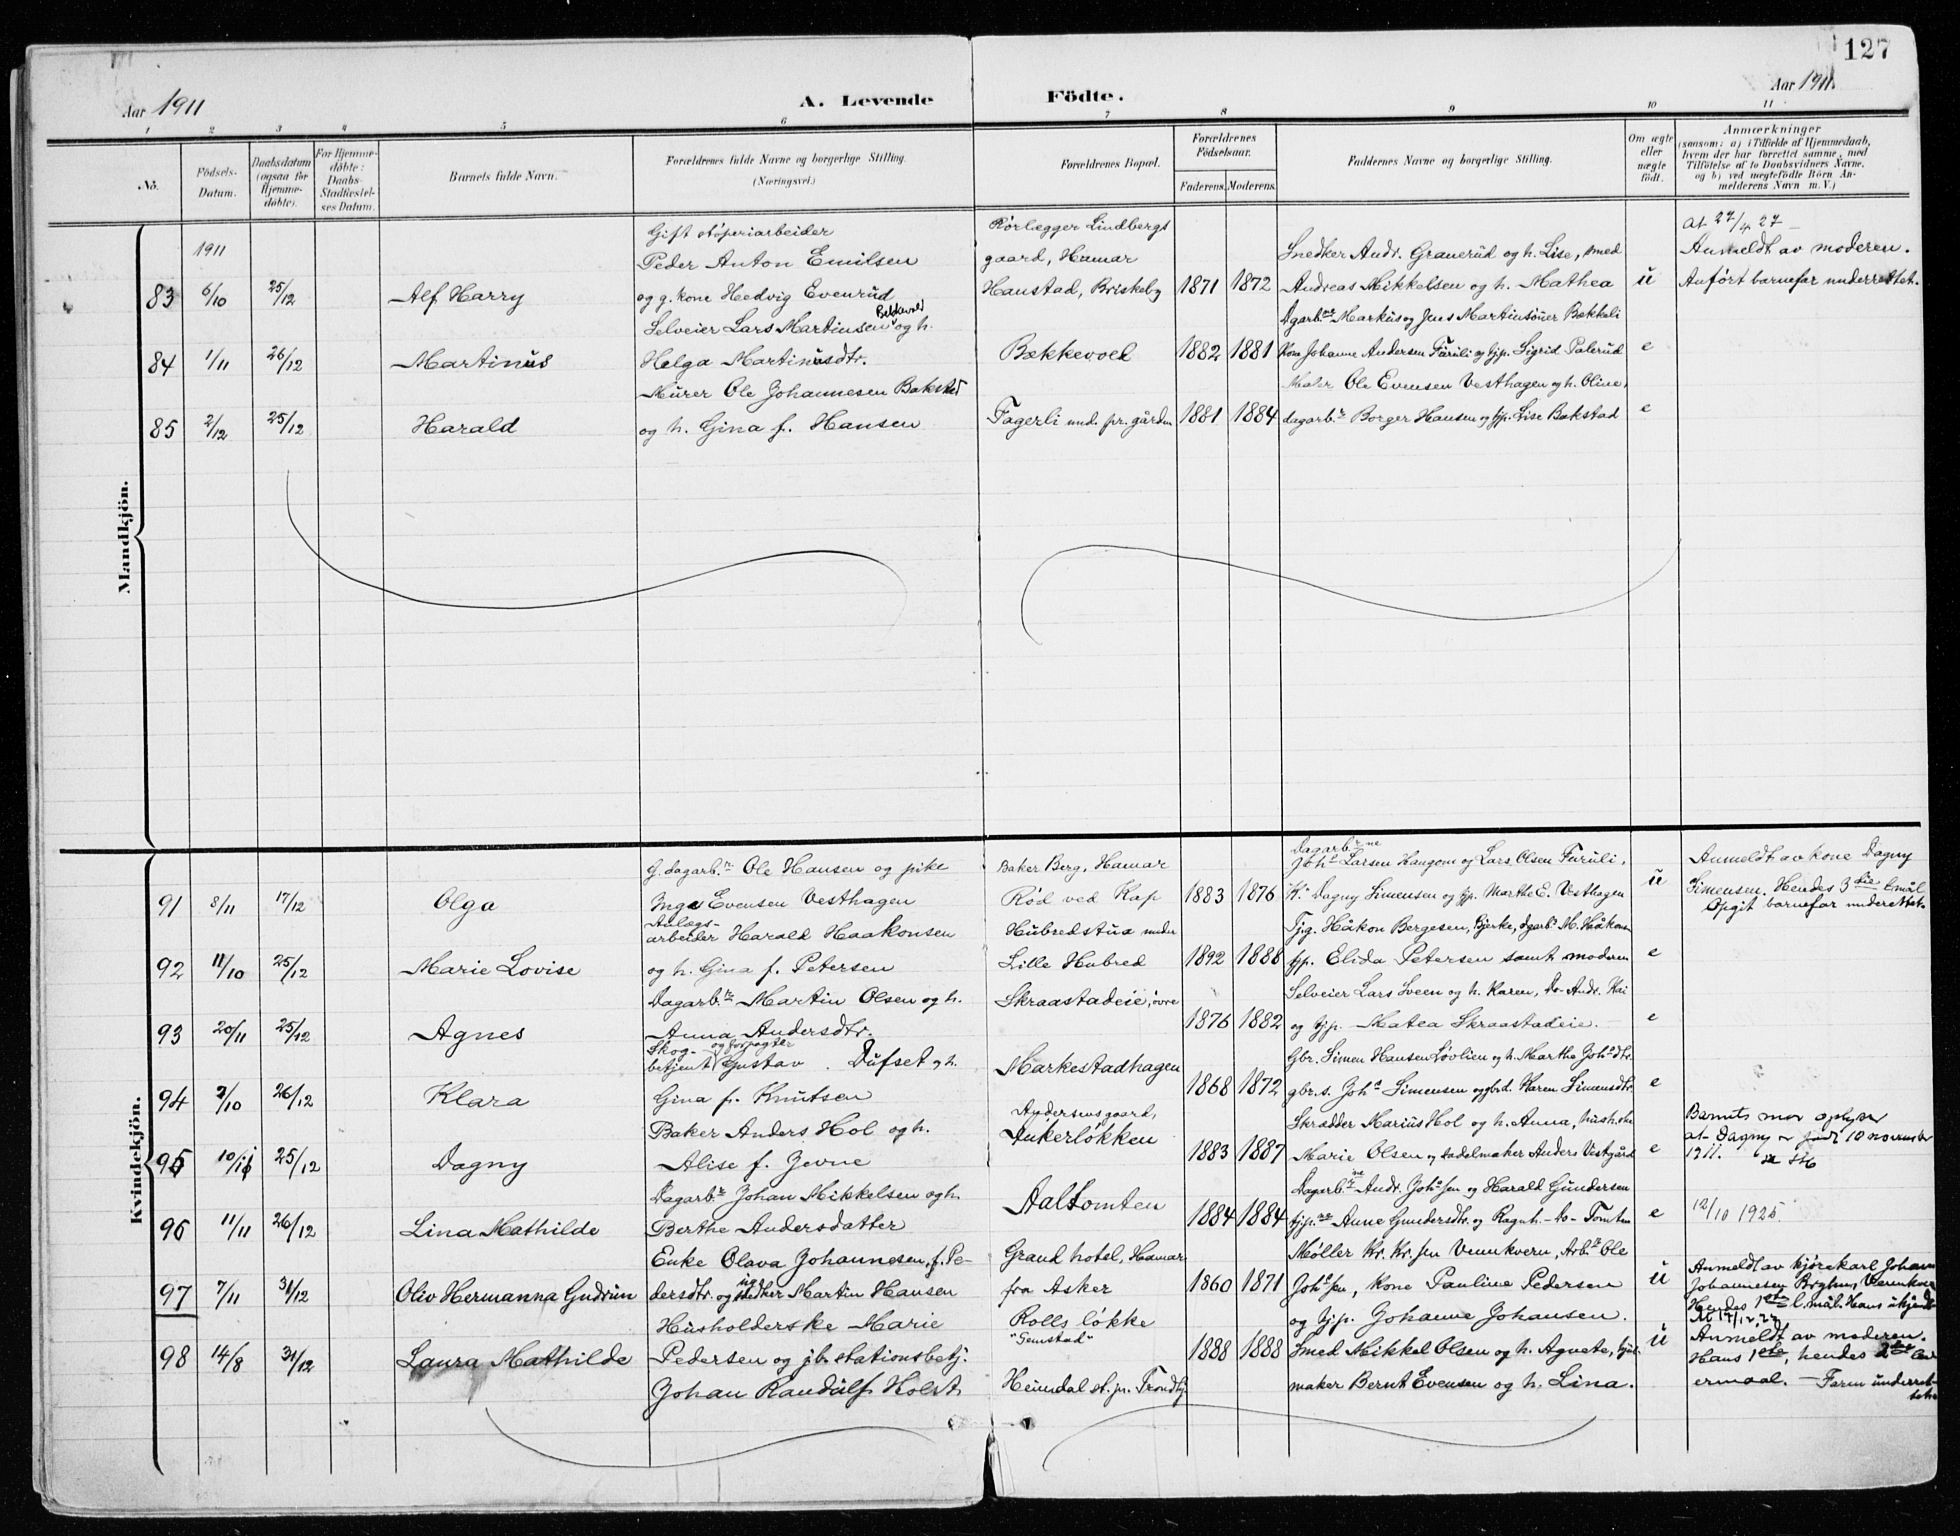 127
Aar 1911
A. Levende
Födte.
Aar 1911.
1 2 3 4 5 6 7 8 9 10 11
No.
Födsels-
Datum.
Daabsdatum
(ogsaa for
Hjemme-
döbte).
For Hjemme-
döbte:
Daabs-
Stadfæstel-
ses Datum.
Barnets fulde Navn.
Forældrenes fulde Navne og borgerlige Stilling.
(Næringsvei.)
Forældrenes Bopæl.
Forældrenes
Födselsaar.
Faderens. Moderens.
Faddernes Navne og borgerlige Stilling.
Om ægte
eller
uægte
födt.
Anmærkninger
(saasom: a) i Tilfælde af Hjemmedaab,
hvem der har forrettet samme, med
Tilföielse af to Daabsvidners Navne,
og b) ved uægtefödte Börn An-
melderens Navn m. V.)
Mandkjön.
1911
83 6/10 25/12 Alf Harry
Gift støperiarbeider
Peder Anton Emilsen
og g. kone Hedvig Evenrud
Rørlægger Lindbergs
gaard, Hamar
Hanstad, Briskeby
1871 1872
Snedker Andr. Granerud og h. Lise, smed
Andreas Mikkelsen og h. Mathea
u
At 27/4 27
Anmeldt av moderen.
Anført barnefar underrettet.
84 1/11 26/12 Martinus
Selveier Lars Martinsen Bekkevold og h.
Helga Martinusdtr.
Bækkevold
1882 1881
Dagarb.ne Markus og Jens Martinsøner Bækkeli
Kone Johanne Andersen Furuli og tjp. Sigrid Palerud
e
85 2/12 25/12 Harald
Murer Ole Johannesen Bakstad
og h. Gina f. Hansen
Fagerli und. pr. gården
1881 1884
Maler Ole Evensen Vesthagen og h. Oline,
dagarb.r Borger Hansen og tjp. Lise Bakstad
e
Kvindekjön.
91 8/11 17/12 Olga
G. dagarb.r Ole Hansen og pike
Inga Evensen Vesthagen
Baker Berg, Hamar
Rød ved Kap
1883 1876
Dagarb.ne
Joh.s Larsen Haugom og Lars Olsen Furuli,
K. Dagny Simensen og tjp. Marthe E. Vesthagen
u
Anmeldt av kone Dagny
Simensen. Hendes 3die l.mål
Opgit barnefar underettet.
92 11/10 25/12 Marie Lovise
Anlægs-
arbeider Harald Haakonsen
og h. Gina f. Petersen
Hubredstua under
Lille Hubred
1892 1888
Tjg. Håkon Bergesen, Bjerke, dgarb. M. Håkons.
tjp. Elida Petersen samt moderen
e
93 20/11 25/12 Agnes
Dagarb.r Martin Olsen og h.
Anna Andersdtr.
Skraastadeie, øvre
1876 1882
Selveier Lars Sveen og h. Karen, Do Andr. Kai
og tjp. Matea Skraastadeie.
e
94 3/10 26/12 Klara
Skog- og forpagter
betjent Gustav Dufset og h.
Gina f. Knutsen
Markestadhagen
1868 1872
Gbr. Simen Hansen Løvlien og h. Marthe Joh.sdtr.
gbr.s. Joh.s Simensen og gbrd. Karen Simensdtr.
e
95 10/11 25/12 Dagny
Baker Anders Hol og h.
Alise f. Jevne
Andersens gaard,
Ankerløkken
1883 1887
Skrædder Marius Hol og h. Anna,
Marie Olsen og sadelmaker Anders Vestgård
e
Barnets mor oplyser
at Dagny er født 10 november
1911.
96 11/11 26/12 Lina Mathilde
Dagarb.r Johan Mikkelsen og h.
Berthe Andersdatter
Aaltomten
1884 1884
Dagarb.ne Andr. Joh.sen og Harald Gundersen
tjp.ne Anne Gundersdtr. og Ragnh. - do - Tomten
e
12/10 1925.
97 7/11 31/12 Oliv Hermanna Gudrun
Enke Olava Johannesen, f. Pe-
dersdtr. og snedker Martin Hansen
Grand hotel, Hamar
fra Asker
1860 1871
Møller Kr. Kr.sen Vennkvern, Arb.r Ole
Joh.sen, kone Pauline Pedersen
og tjp. Johanne Johansen.
u
Anmeldt av kjørekarl Johan
Johannesen
Hendes 1ste l.mål. Hans ukjendt
98 14/8 31/12 Laura Mathilde
Husholderske Marie
Pedersen og jb. stationsbetj.
Johan Randulf Holst
Rolls løkke
"Semstad"
Heimdal st. pr. Trondhj.
1888 1888
Smed Mikkel Olsen og h. Agnete, hjul-
maker Bernt Evensen og h. Lina.
u
At 17/12.27
Anmeldt av moderen.
Hans 1ste, hendes 2det lei-
ermaal. — Faren underret-
tet.